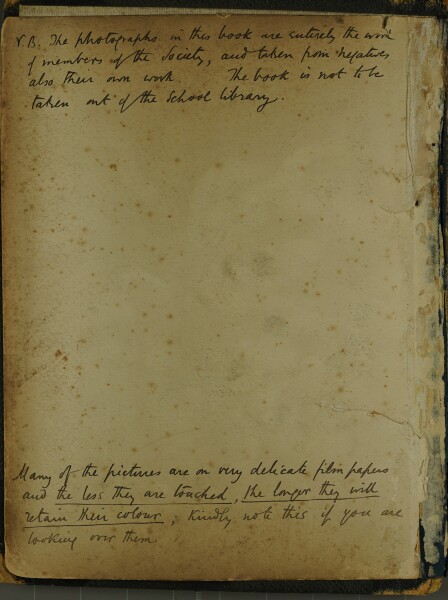 N.B. The photographs in this book are entirely the work
of members of the Society, and taken from negatives
also their own work. The book is not to be
taken out of the School library.
Many of the pictures are on very delicate film papers
and the less they are touched, the longer they will
retain their colour, kindly note this if you are
looking over them.